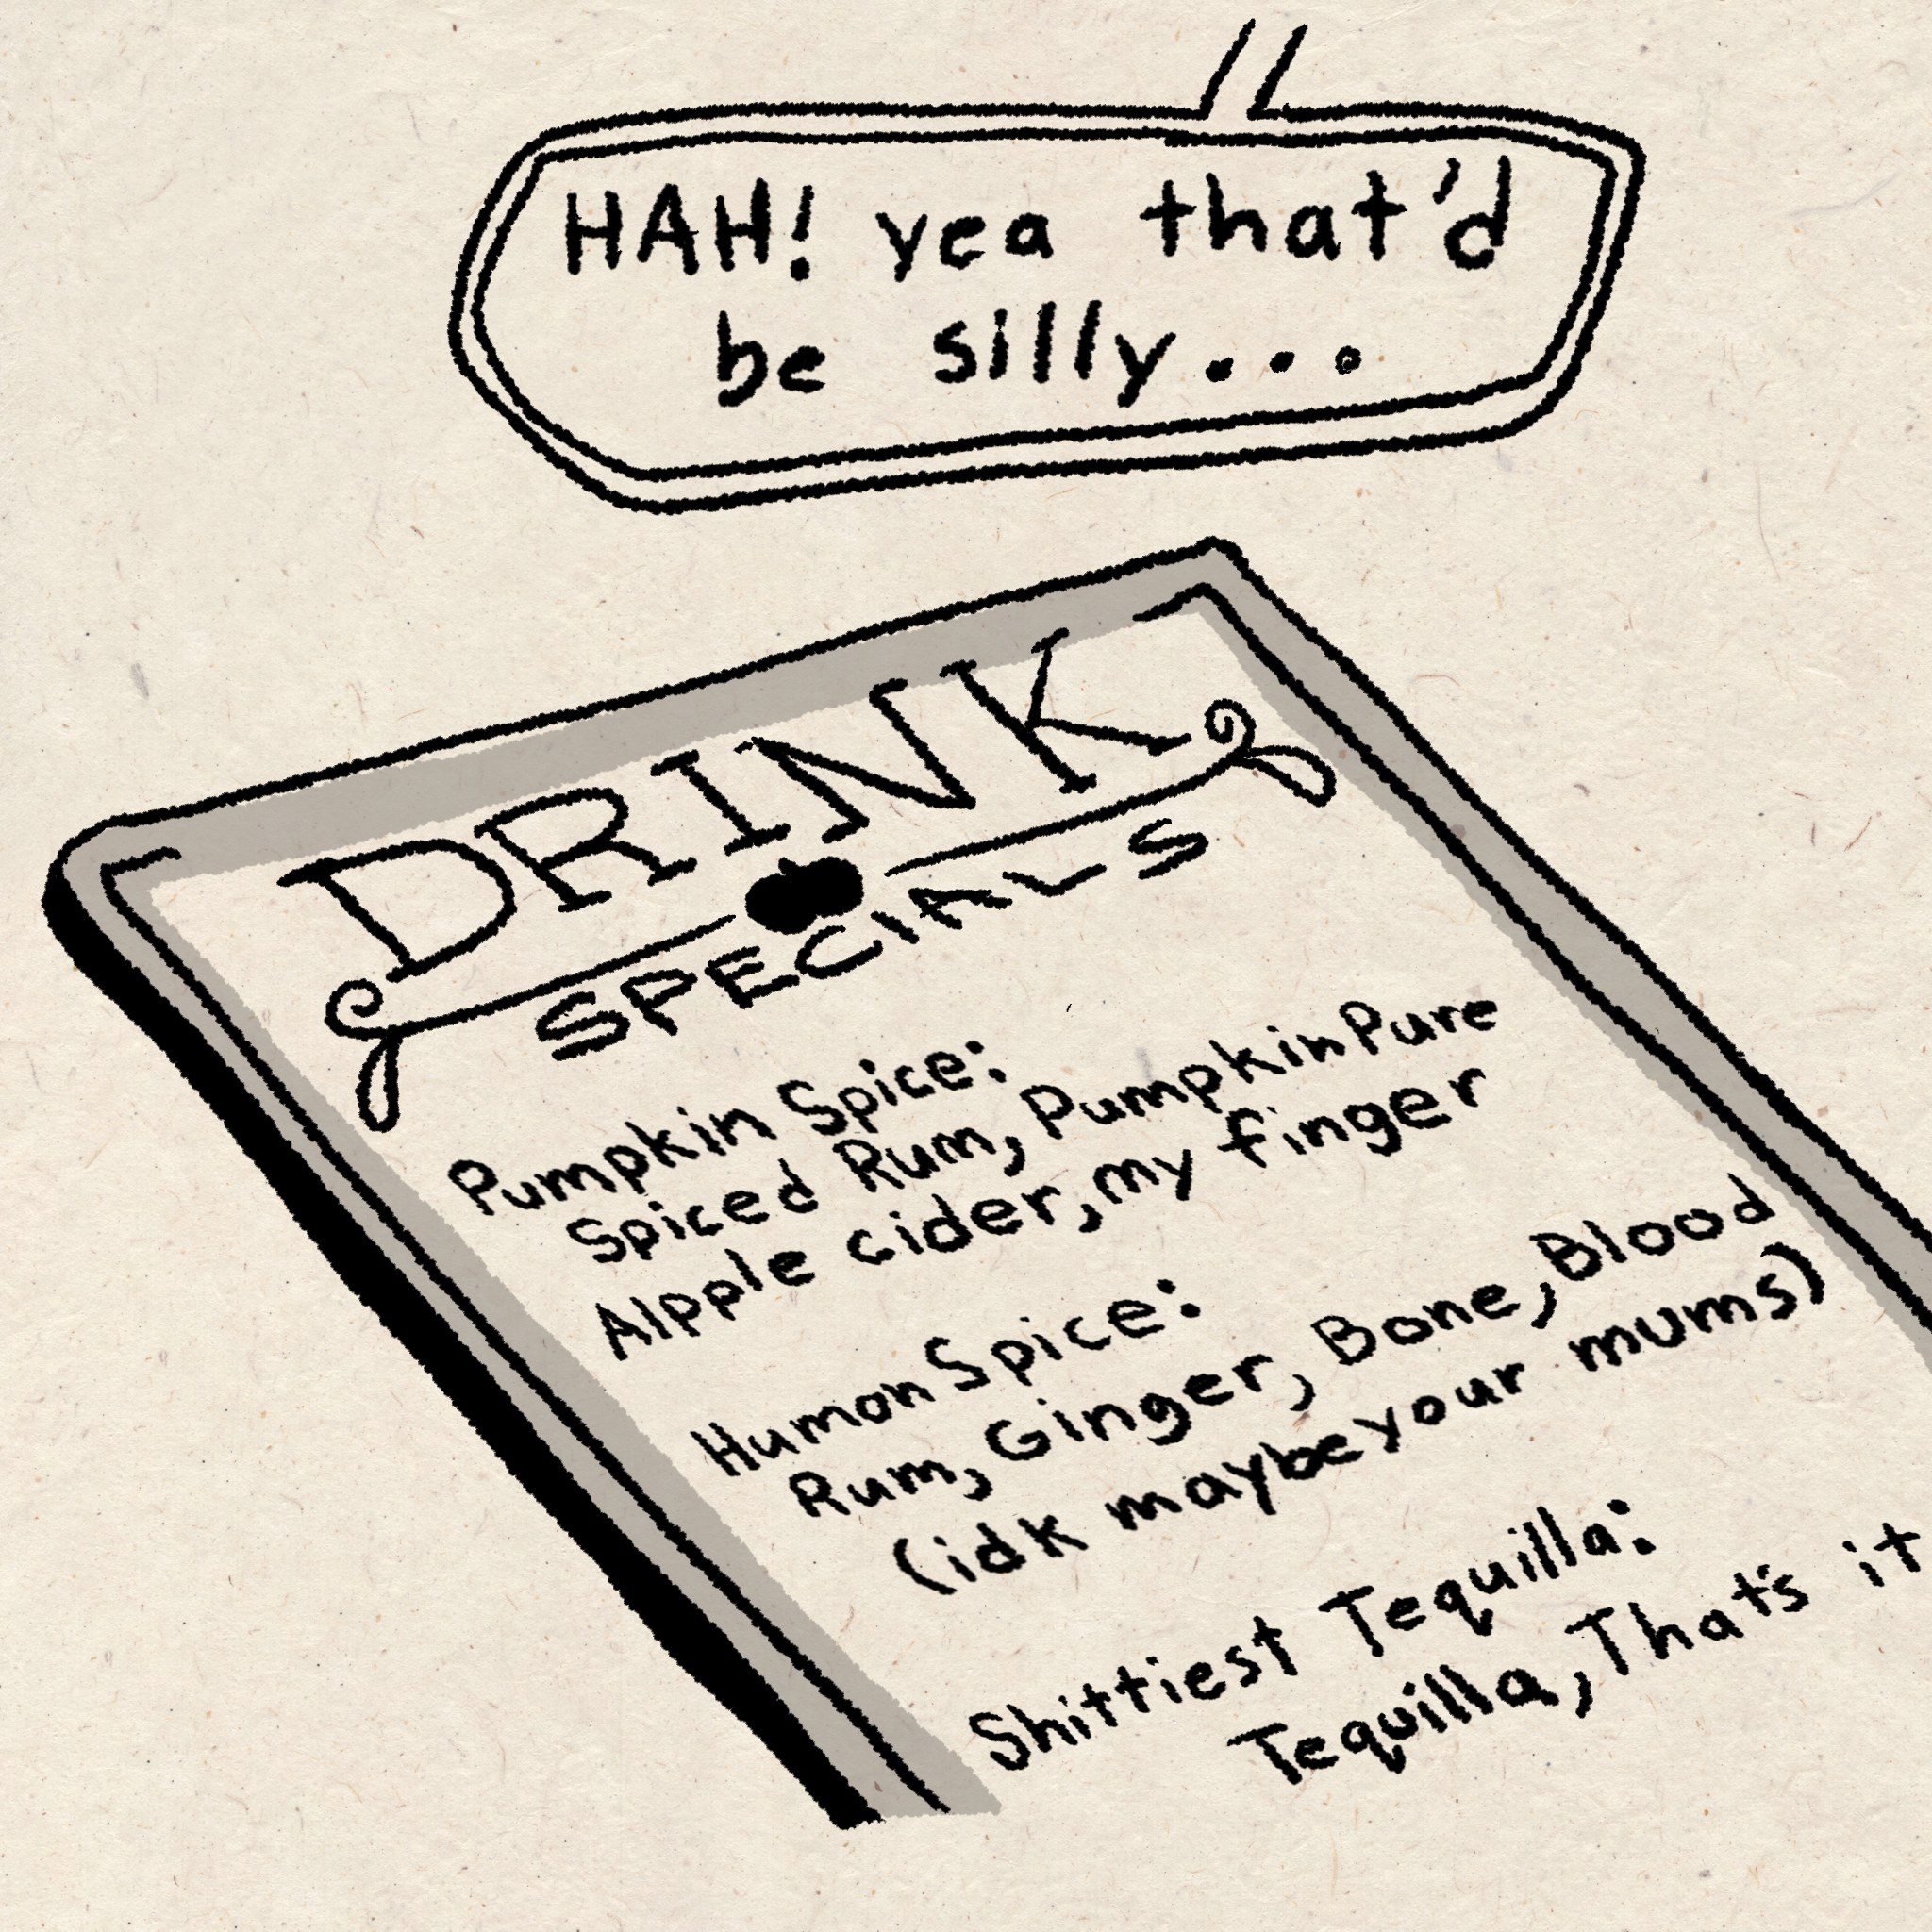 HAH! yea that'd
be silly...
DRINK
SPECIALS
Pumpkin Spice:
Spiced Rum, Pumpkin Pure
Alpple cider, my finger
Human Spice:
Rum, Ginger, Bone, Blood
(idk maybe your mums)
Shittiest Tequilla:
Tequilla, That's it